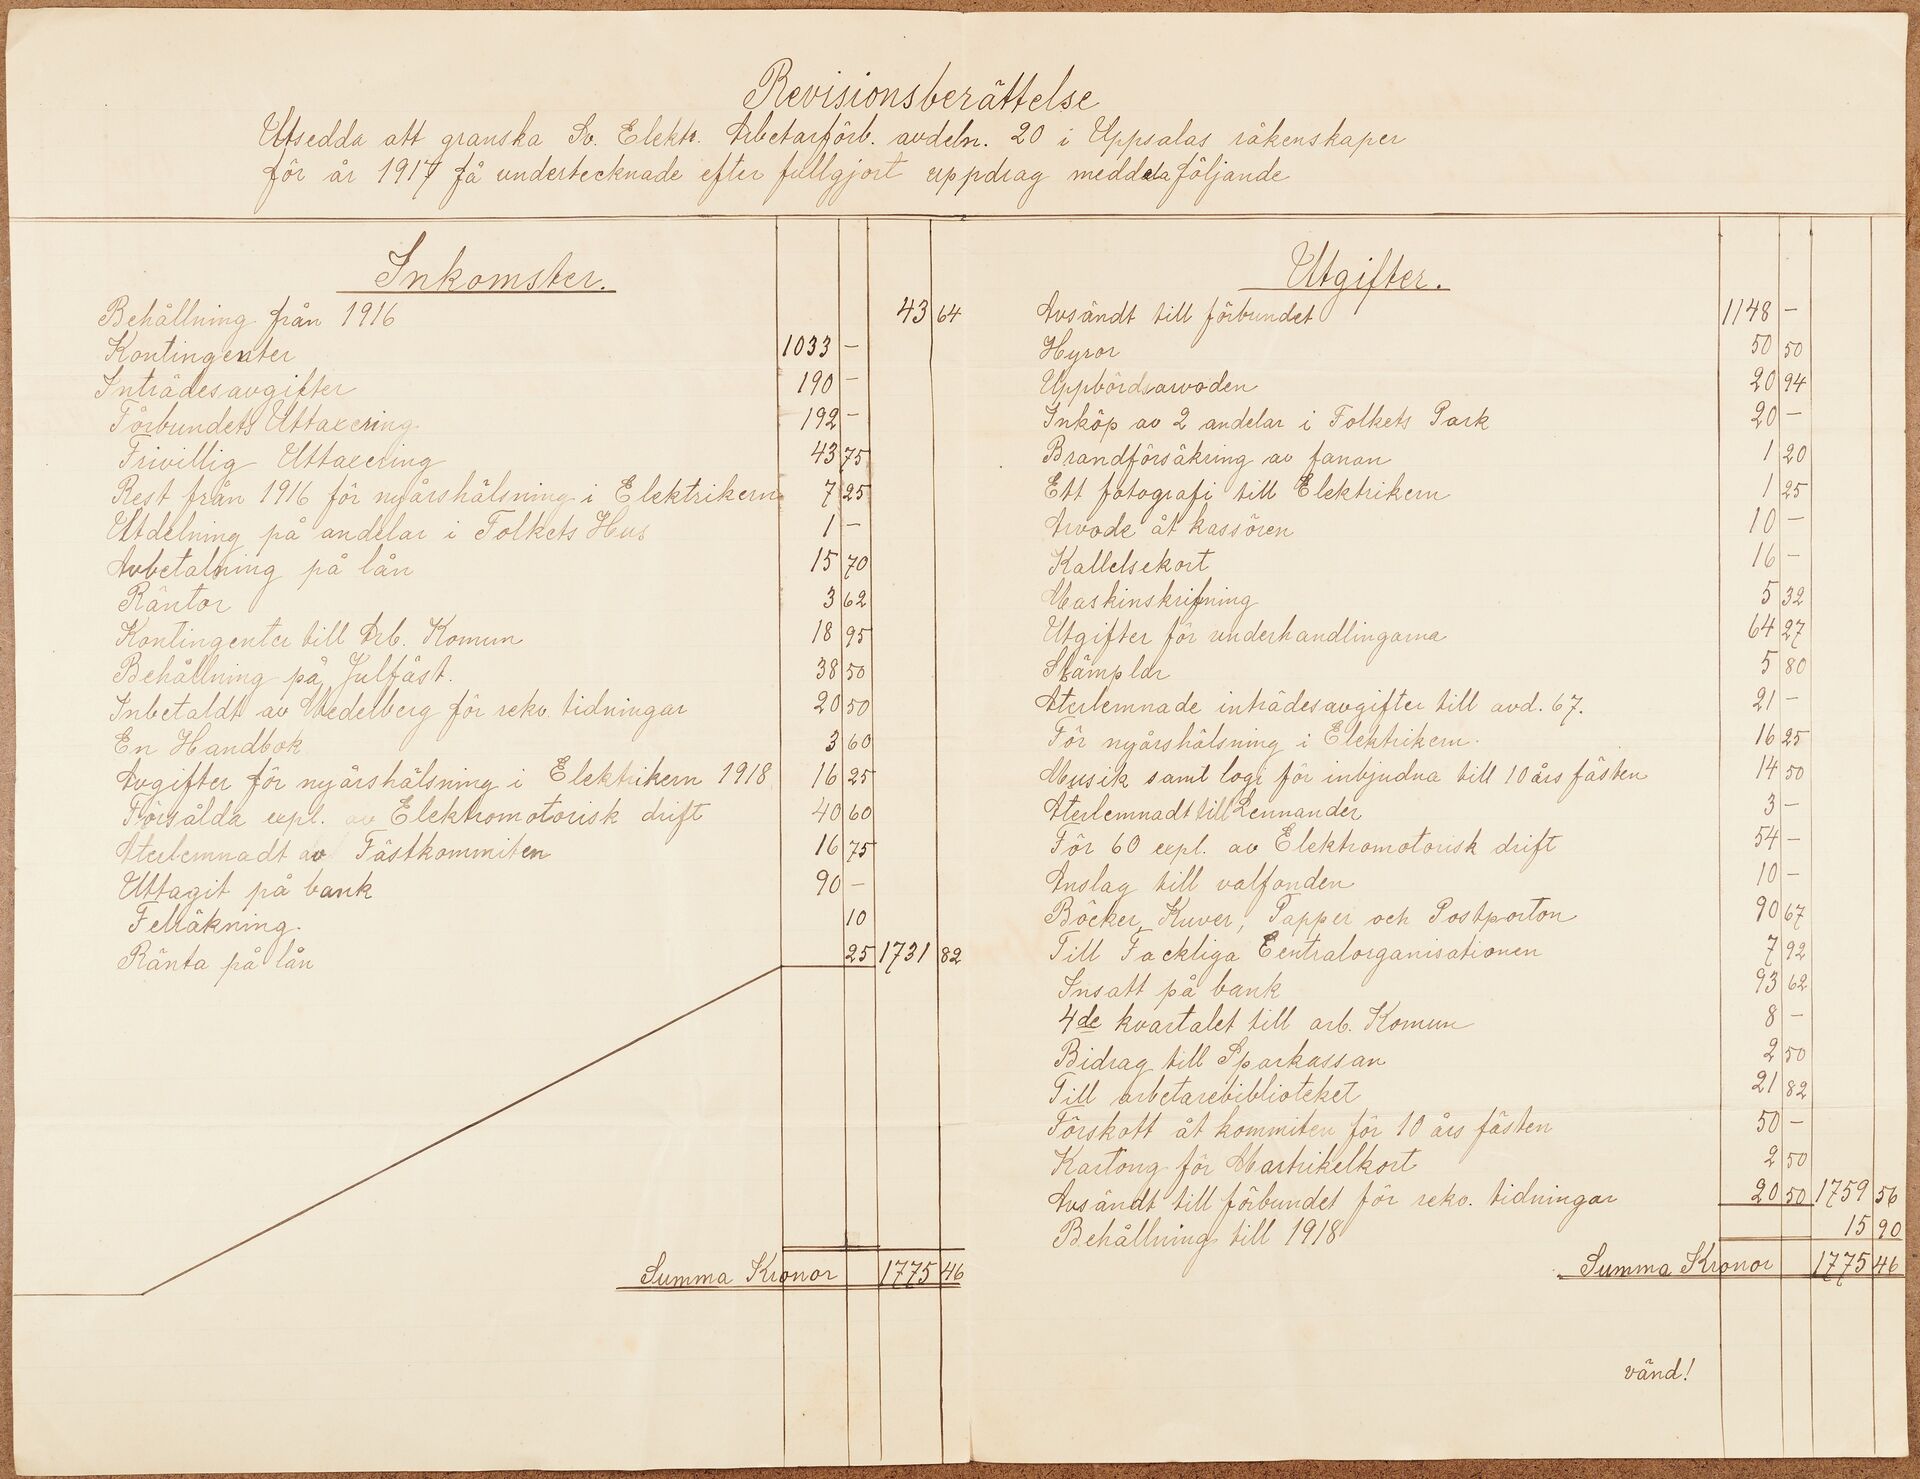 Revisionsberättelse
Utsedda att granska Sv. Elektr. Arbetarförb. avdeln. 20 i Uppsalas räkenskaper
för år 1917 få undertecknade efter fullgjort uppdrag meddela följande
Inkomster.
Behållning från 1916 43 64
Kontingenter 1033 –
Inträdesavgifter 190 –
Förbundets Uttaxering 192 –
Frivillig Uttaxering 43 75
Rest från 1916 för nyårshälsning i Elektrikern 7 25
Utdelning på andelar i Folkets Hus 1 –
Avbetalning på lån 15 70
Räntor 3 62
Kontingenter till Arb. Komun 18 95
Behållning på Julfäst. 38 50
Inbetaldt av Wedelberg för rekv. tidningar 20 50
En Handbok 3 60
Avgifter för nyårshälsning i Elektrikern 1918 16 25
Försålda expl. av Elektromotorisk drift 40 60
Återlemnadt av Fästkommiten 16 75
Uttagit på bank 90 –
Felräkning. 10
Ränta på lån 25 1731 82
Summa Kronor 1775 46
Utgifter.
Avsändt till förbundet 1148 –
Hyror 50 50
Uppbördsarvoden 20 94
Inköp av 2 andelar i Folkets Park 20 –
Brandförsäkring av fanan 1 20
Ett fotografi till Elektrikern 1 25
Arvode åt kassören 10 –
Kallelsekort 16 –
Maskinskrifning 5 32
Utgifter för underhandlingarna 64 27
Stämplar 5 80
Återlemnade inträdesavgifter till avd. 67. 21 –
För nyårshälsning i Elektrikern. 16 25
Musik samt logi för inbjudna till 10 års fästen 14 50
Återlemnadt till Lennander 3 –
För 60 expl. av Elektromotorisk drift 54 –
Anslag till valfonden 10 –
Böcker, Kuver, Papper och Postporton 90 67
Till Fackliga Centralorganisationen 7 92
Insatt på bank 93 62
4de kvartalet till arb. Komun 8 –
Bidrag till Sparkassan 2 50
Till arbetarebiblioteket 21 82
Förskott åt kommiten för 10 års fästen 50 –
Kartong för Martrikelkort 2 50
Avsändt till förbundet för rekv. tidningar 20 50 1759 56
Behållning till 1918 15 90
Summa Kronor 1775 46
vänd!